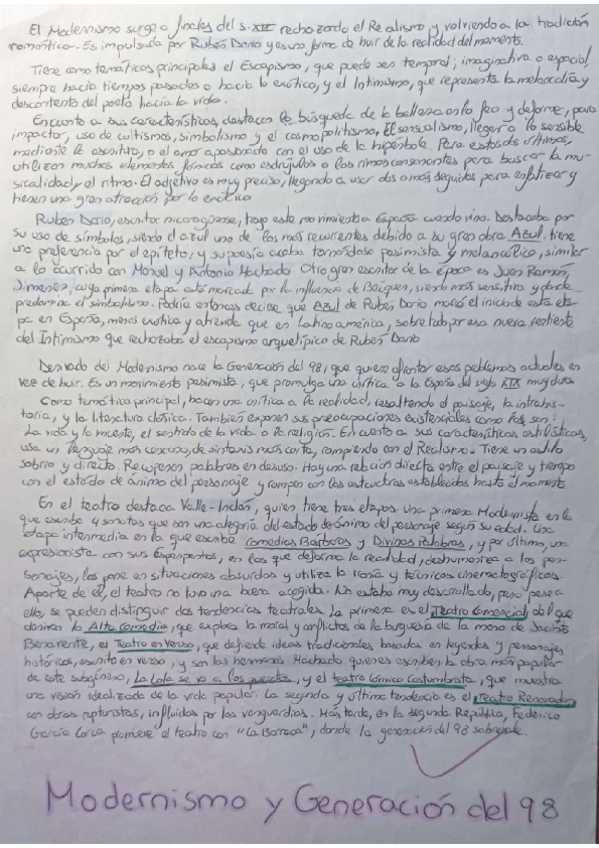 El Modernismo surge a finales del s. XIX rechazando el Realismo y volviendo a la tradición
romántica. Es impulsada por Rubén Darío y es una forma de huir de la realidad del momento.
Tiene como temáticas principales el Escapismo, que puede ser temporal, imaginativa o espacial,
siempre hacia tiempos pasados o hacia lo exótico, y el Intimismo, que representa la melancolía y
descontento del poeta hacia la vida.
En cuanto a sus características, destacan la búsqueda de la belleza en lo feo y deforme, para
impactar, uso de cultismos, simbolismo y el cosmopolitismo, El sensualismo, llegar a lo sensible
mediante la escritura, o el amor apasionado con el uso de la hipérbole. Para estas dos últimas,
utilizan muchos elementos fónicos como esdrújulas o las rimas consonantes para buscar la mu-
sicalidad y el ritmo. El adjetivo es muy preciso, llegando a usar dos o más seguidos para enfatizar y
tienen una gran atracción por lo exótico
Rubén Darío, escritor nicaragüense, trajo este movimiento a España cuando vino. Destacaba por
su uso de símbolos, siendo el azul uno de los más recurrentes debido a su gran obra Azul. tiene
una preferencia por el epíteto, y su poesía acaba tornándose pesimista y melancólica, similar
a lo ocurrido con Manuel y Antonio Machado. Otro gran escritor de la época es Juan Ramón
Jimenes, cuya primera etapa está marcada por la influencia de Bécquer, siendo más sensitiva y donde
predomina el simbolismo. Podría entonces decirse que Azul de Rubén Darío marcó el inicio de esta eta-
pa en España, menos exótica y atrevida que en Latinoamérica, sobre todo por esa nueva vertiente
del Intimismo que rechazaba el escapismo arquetípico de Rubén Darío
Derivado del Modernismo nace la Generación del 98, que quiere afrontar esos problemas actuales en
vez de huir. Es un movimiento pesimista, que promulga una crítica a la España del siglo XIX muy dura
Como temática principal, hacen una crítica a la realidad, resaltando el paisaje, la intrahis-
toria, y la literatura clásica. También exponen sus preocupaciones existenciales como lo son:
La vida y la muerte, el sentido de la vida o la religión. En cuanto a sus características estilísticas,
usa un lenguaje más conciso, de sintaxis más corta, rompiendo con el Realismo. Tiene un estilo
sobrio y directo. Recuperan palabras en desuso. Hay una relación directa entre el paisaje y tiempo
con el estado de ánimo del personaje y rompen con las estructuras establecidas hasta el momento
En el teatro destaca Valle-Inclán, quien tiene tres etapas. Una primera Modernista en la
que escribe 4 sonatas que son una alegoría del estado de ánimo del personaje según su edad. Una
etapa intermedia en la que escribe Comedias Bárbaras y Divinas Palabras, y por último, una
expresionista con sus Esperpentos, en los que deforma la realidad, deshumaniza a los per-
sonajes, los pone en situaciones absurdas y utiliza la ironía y técnicas cinematográficas.
Aparte de él, el teatro no tuvo una buena acogida. No estaba muy desarrollado, pero pese a
ello, se pueden distinguir dos tendencias teatrales. La primera es el Teatro Comercial del que
derivan la Alta Comedia, que explora la moral y conflictos de la burguesía de la mano de Jacinto
Benavente, el Teatro en Verso, que defiende ideas tradicionales basadas en leyendas y personajes
históricos, escrito en verso, y son los hermanos Machado quienes escriben la obra más popular
de este subgénero, La Lola se va a los puertos, y el teatro Cómico Costumbrista, que muestra
una visión idealizada de la vida popular. La segunda y última tendencia es el Teatro Renovador
con obras rupturistas, influidas por las vanguardias. Más tarde, en la segunda República, Federico
García Lorca promueve el teatro con "La Barraca", donde la generación del 98 sobresale.
Modernismo y Generación del 98